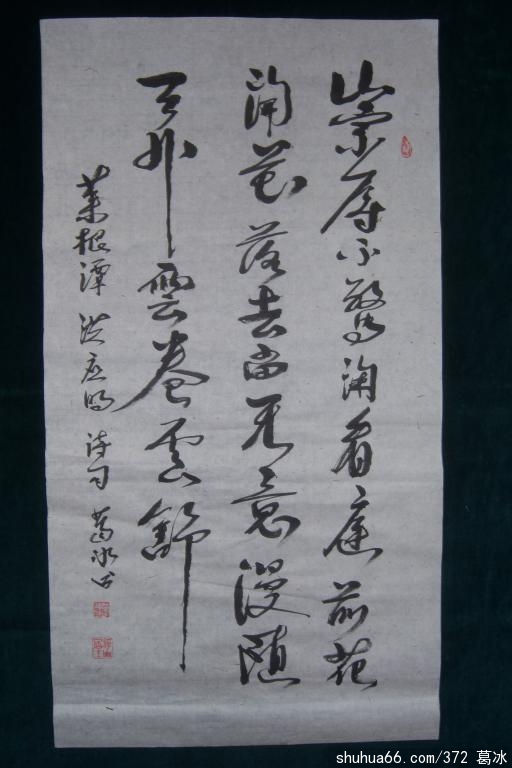 崇辱不驚闲看庭前花
開花落去留无意漫随
天外雲卷云舒
菜根谭 洪应明 诗句 葛冰书
shuhua66.com/372 葛冰